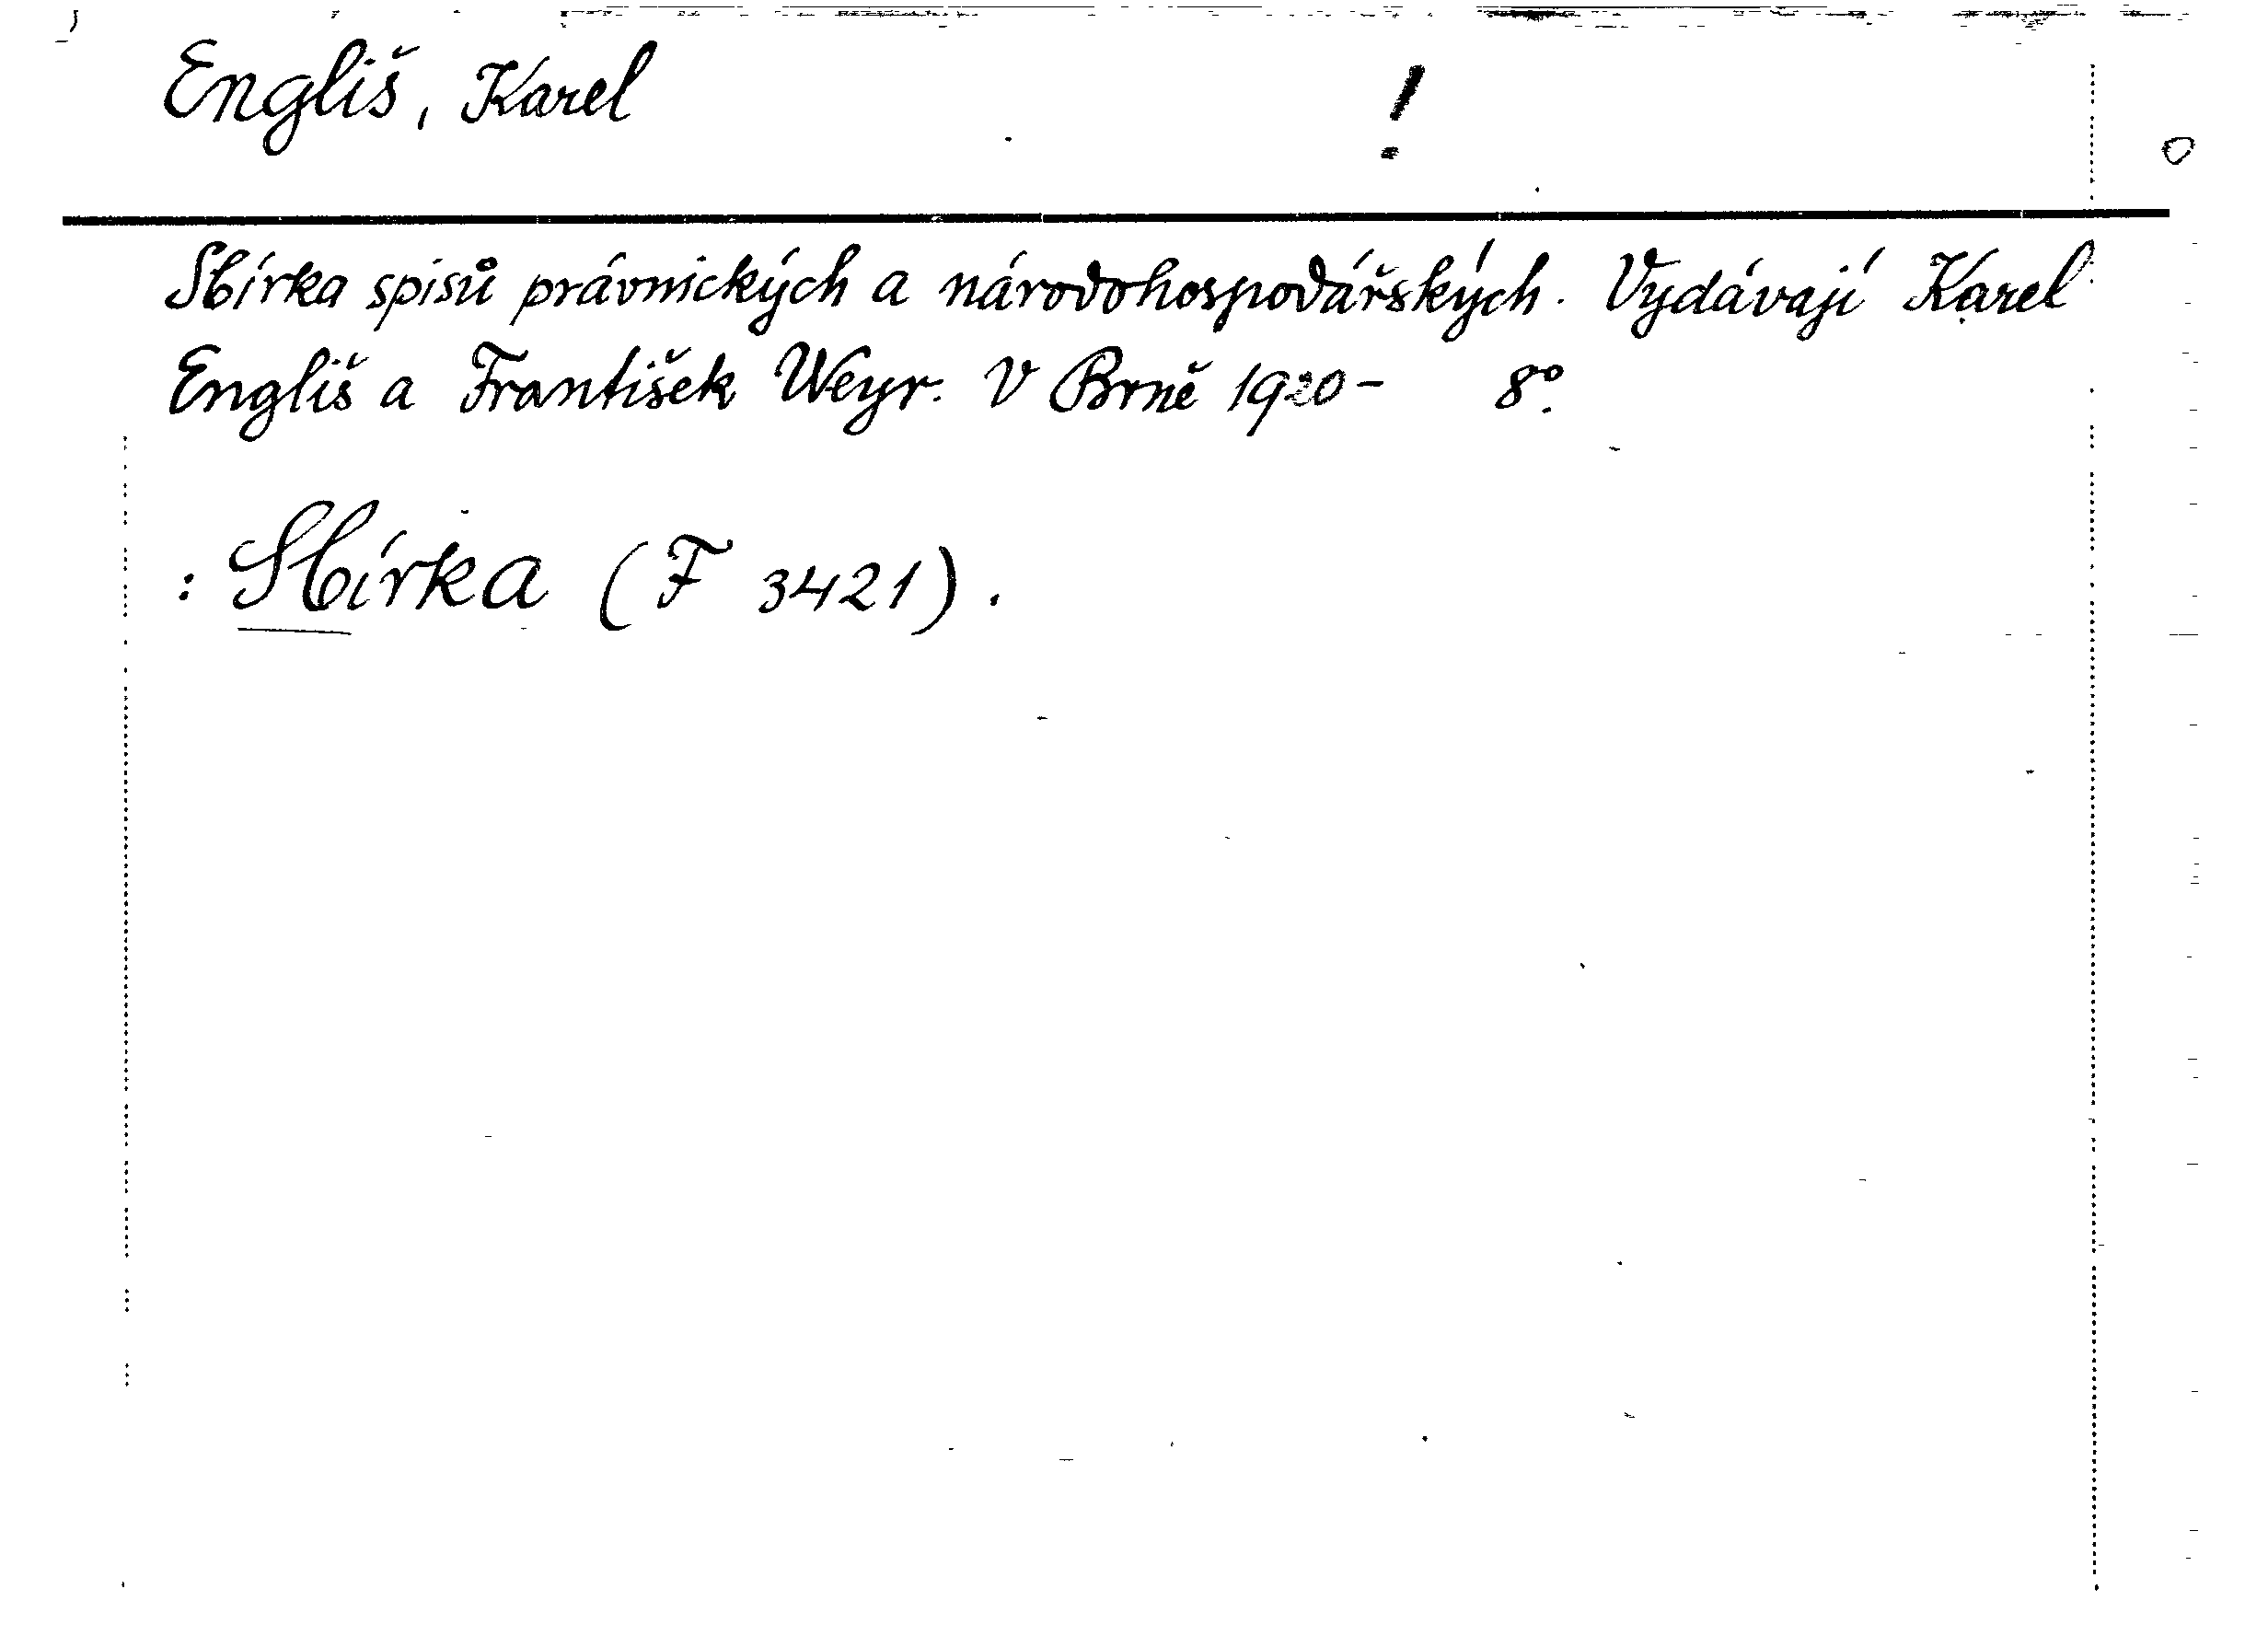 Engliš, Karel !
Sbírka spisů právnických a národohospodářských. Vydávají Karel
Engliš a František Weyr. V Brně 1920- 8°.
: Sbírka (F 3421).